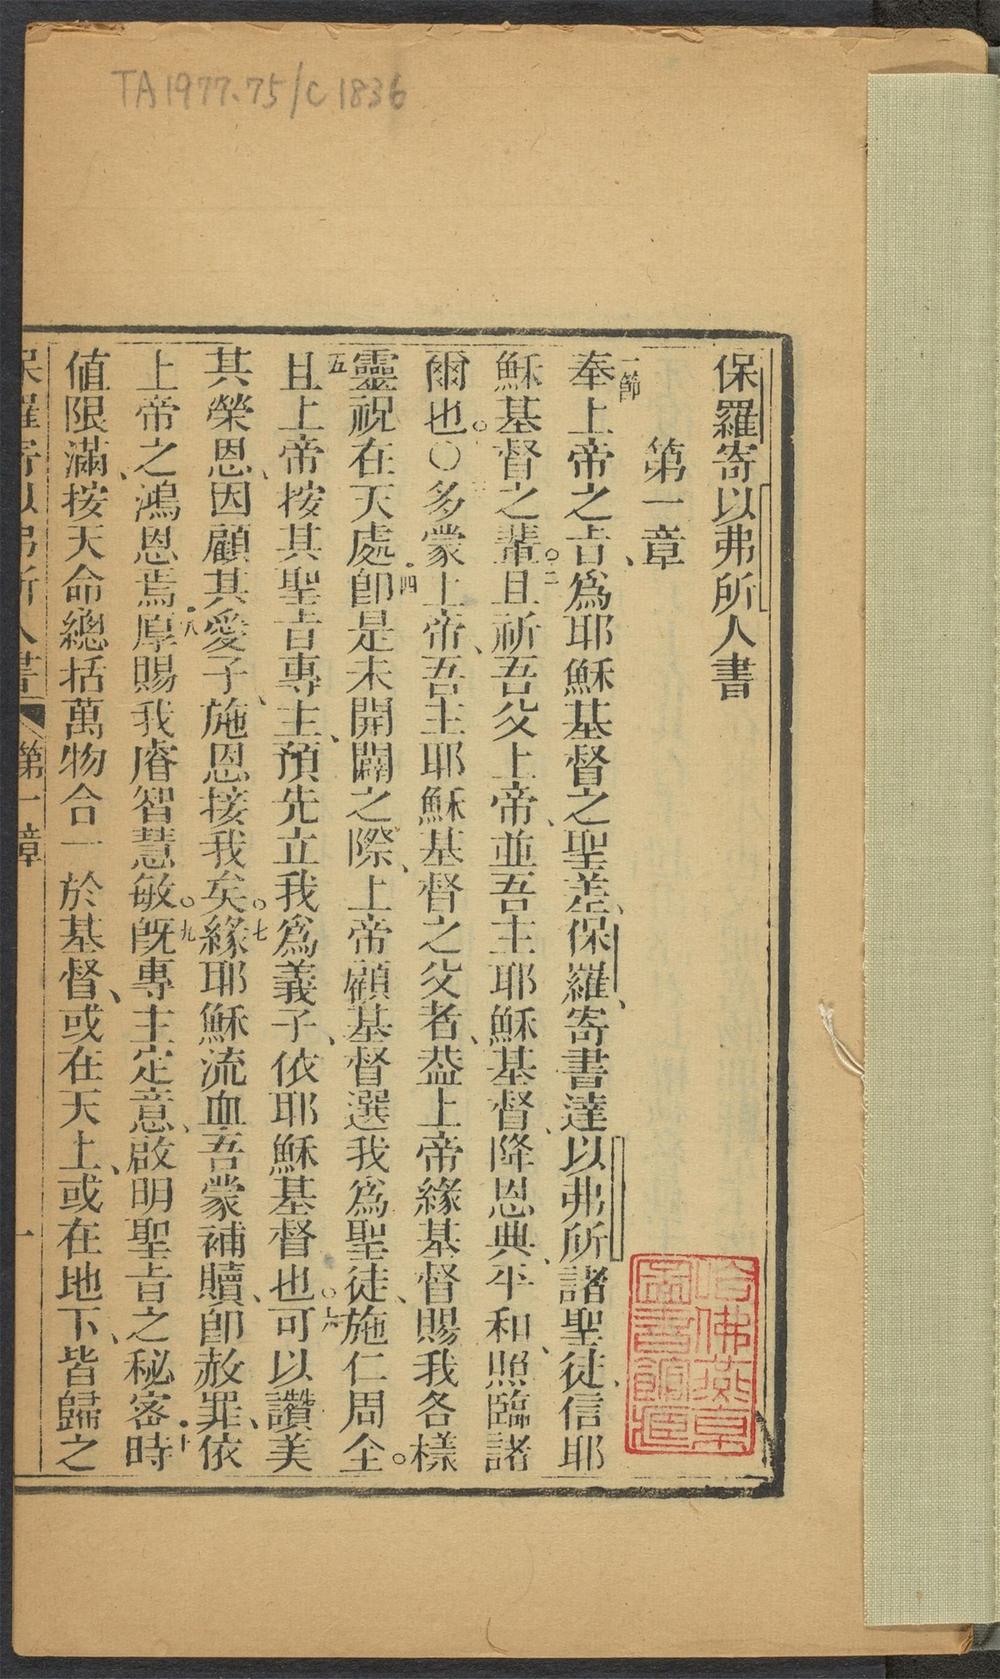 TA 1977.75/C1836
保羅寄以弗所人書
第一章
一節奉上帝之旨、爲耶穌基督之聖差、保羅、寄書達以弗所諸聖徒、信耶
穌基督之輩。二且祈吾父上帝、並吾主耶穌基督、降恩典、平和、照臨諸
爾也。〇三多蒙上帝、吾主耶穌基督之父者、葢上帝緣基督賜我各樣
靈祝在天處。四卽是未開闢之際、上帝顧基督選我爲聖徒、施仁周全。
五且上帝按其聖旨專主、預先立我爲義子、依耶穌基督也。六可以讚美
其榮恩、因顧其愛子、施恩接我矣。七緣耶穌流血、吾蒙補贖、卽赦罪、依
上帝之鴻恩焉。八厚賜我睿智慧敏。九旣專主定意、啟明聖旨之秘密。十時
值限滿、按天命總括萬物合一於基督、或在天上、或在地下、皆歸之
保羅寄以弗所人書 第一章 一
哈佛燕京
圖書館藏